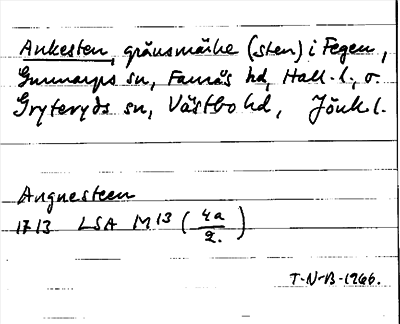 Ankesten, gränsmärke (sten) i Fegen,
Gunnarps sn, Faurås hd, Hall. l., o.
Gryteryds sn, Västbo hd, Jönk l.
Angnesteen
1713 LSA M13 (4a/2.)
T-N-B-1966.